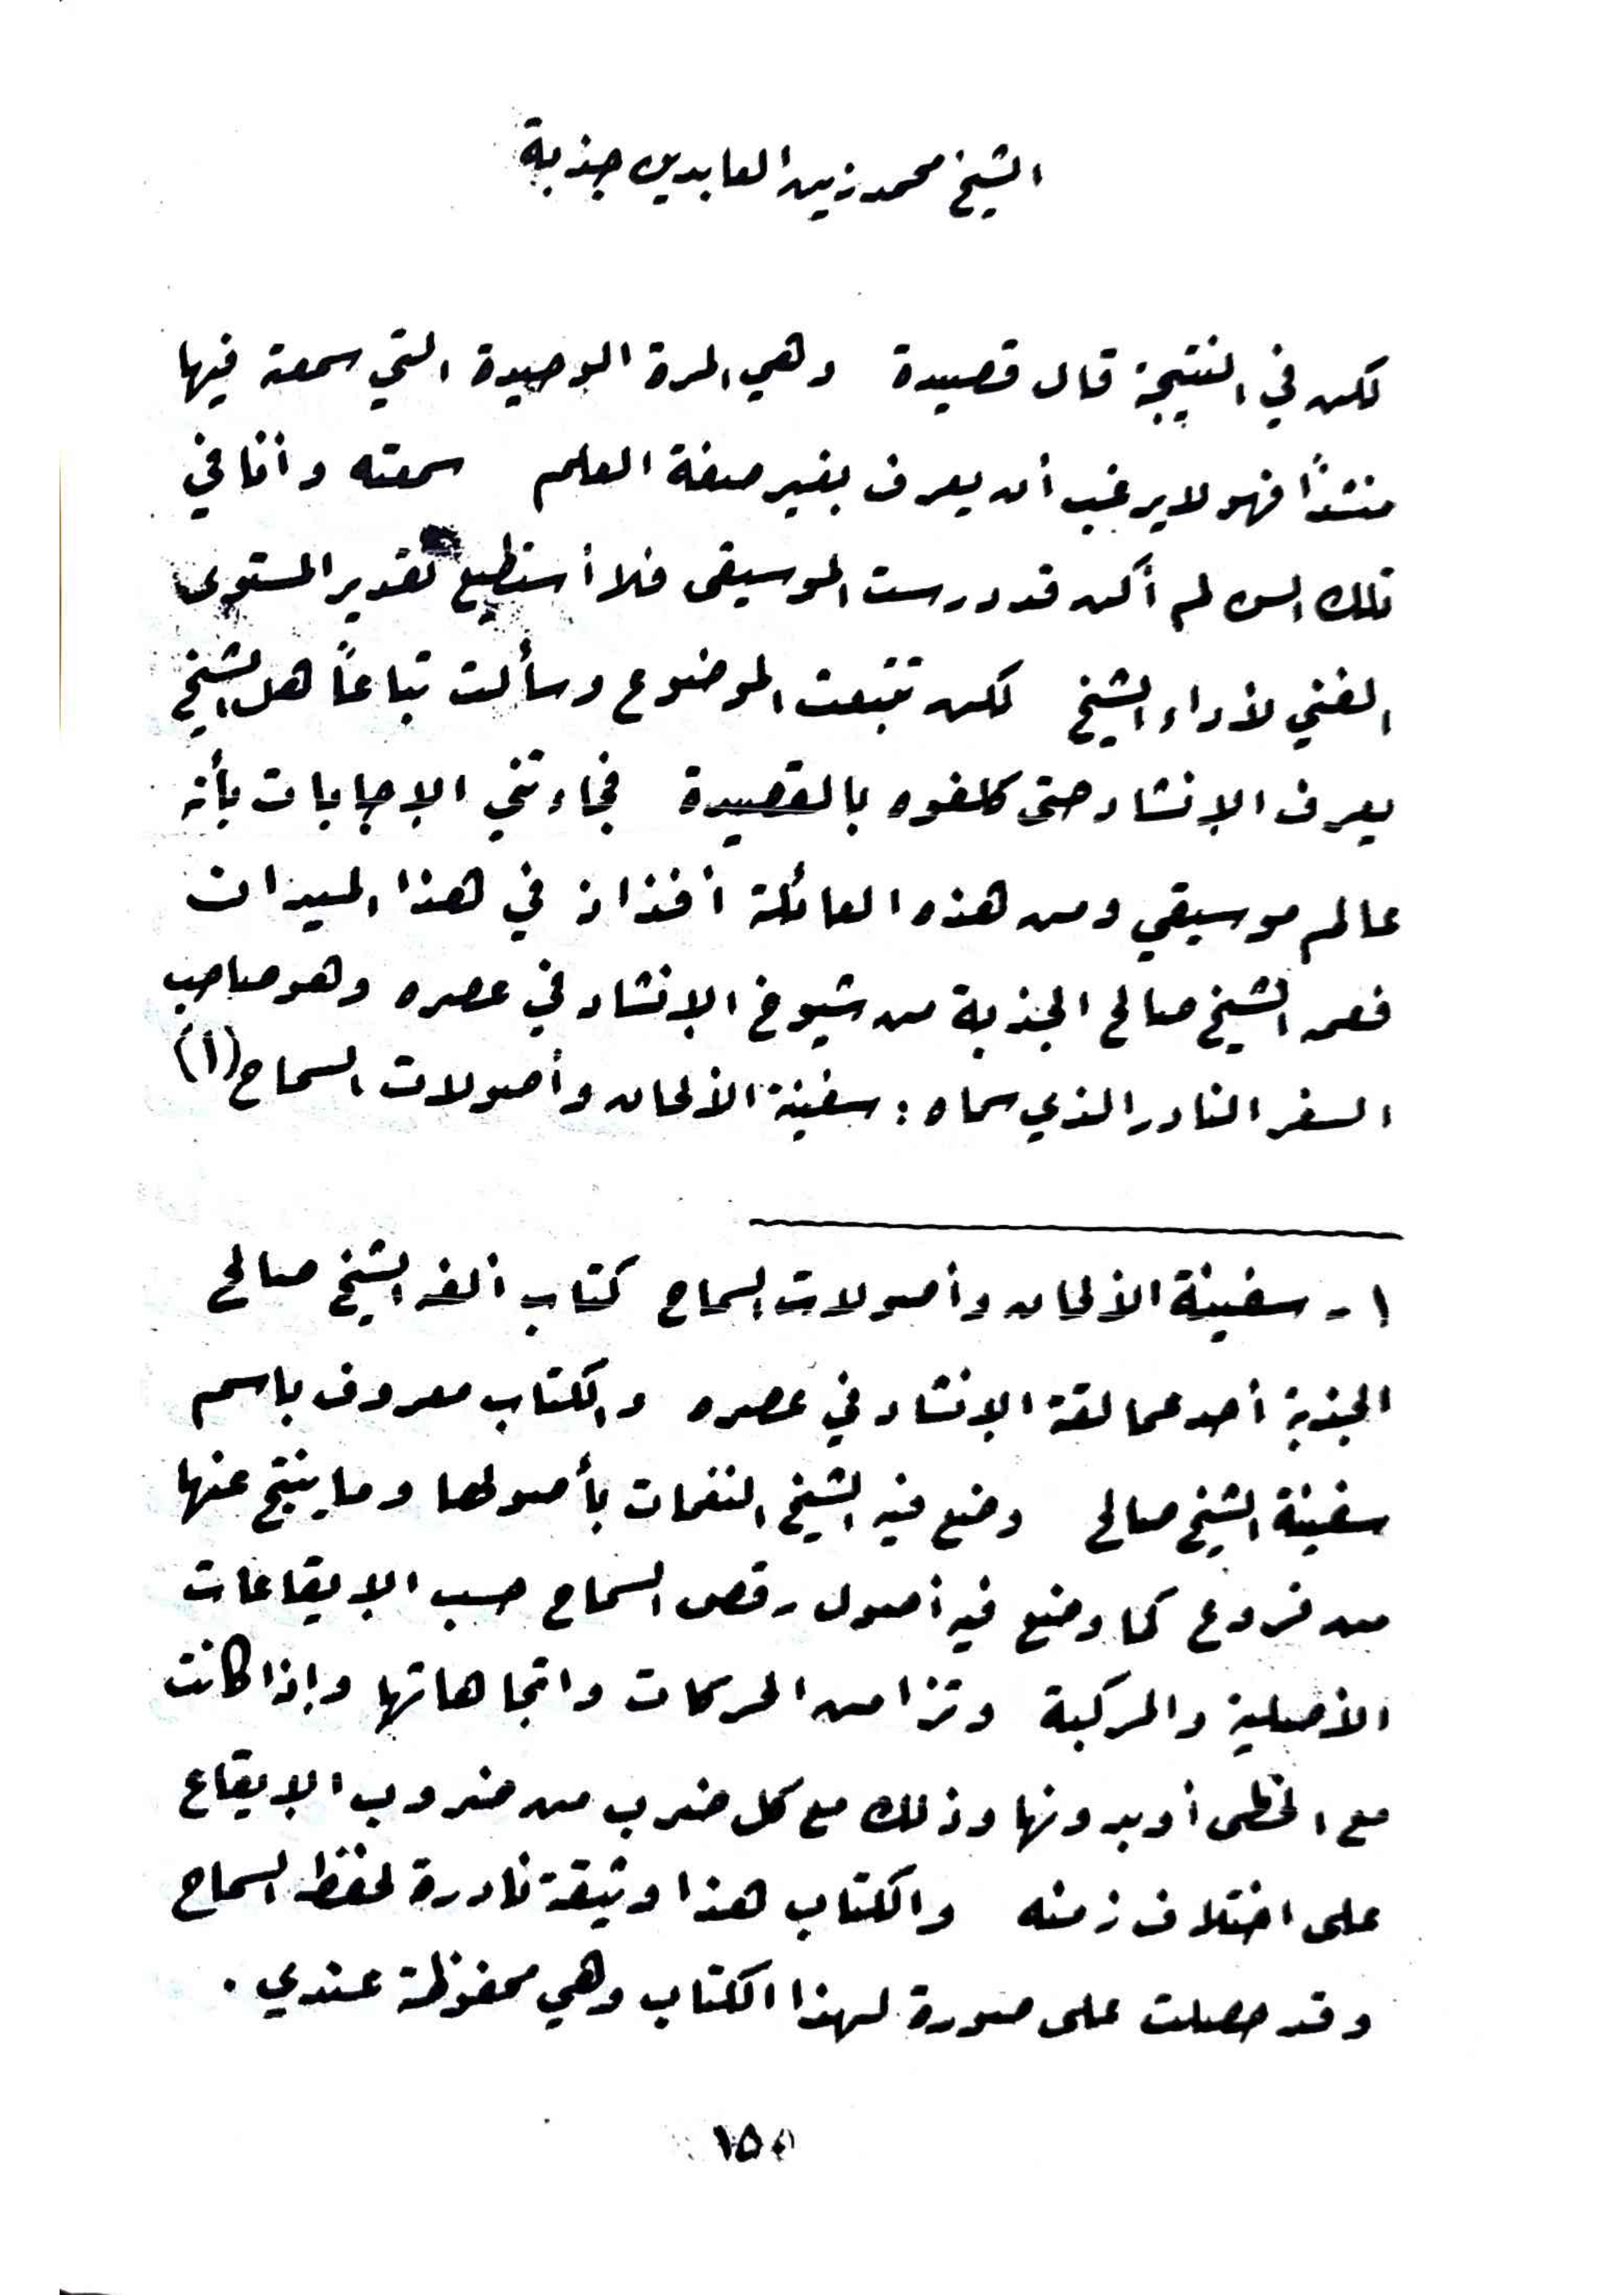 الشيخ محمد زين العابدين جذبة
لكن في النتيجة قال قصيدة وهي المرة الوحيدة التي سمعته فيها
منشداً فهو لا يرغب أن يعرف بغير صفة العلم سمعته وأنا في
تلك السن لم أكن قد درست الموسيقى فلا أستطيع تقدير المستوى
الفني لأداء الشيخ لكن تتبعت الموضوع وسألت تباعاً هل الشيخ
يعرف الإنشاد حتى كلفوه بالقصيدة فجاءتني الإجابات بأنه
عالم موسيقي ومن هذه العائلة أفذاذ في هذا الميدان
فعمه الشيخ صالح الجذبة من شيوخ الإنشاد في عصره وهو صاحب
السفر النادر الذي سماه : سفينة الألحان وأصولات السماح (١)
١ - سفينة الألحان وأصولات السماح كتاب ألفه الشيخ صالح
الجذبة أحد عمالقة الإنشاد في عصره والكتاب معروف باسم
سفينة الشيخ صالح وضع فيه الشيخ النغمات بأصولها وما ينتج عنها
من فروع كما وضع فيه أصول رقص السماح حسب الإيقاعات
الأصلية والمركبة وتزامن الحركات واتجاهاتها وإذا كانت
مع الخطى أو بدونها وذلك مع كل ضرب من ضروب الإيقاع
على اختلاف زمنه والكتاب هذا وثيقة نادرة لحفظ السماح
وقد حصلت على صورة لهذا الكتاب وهي محفوظة عندي .